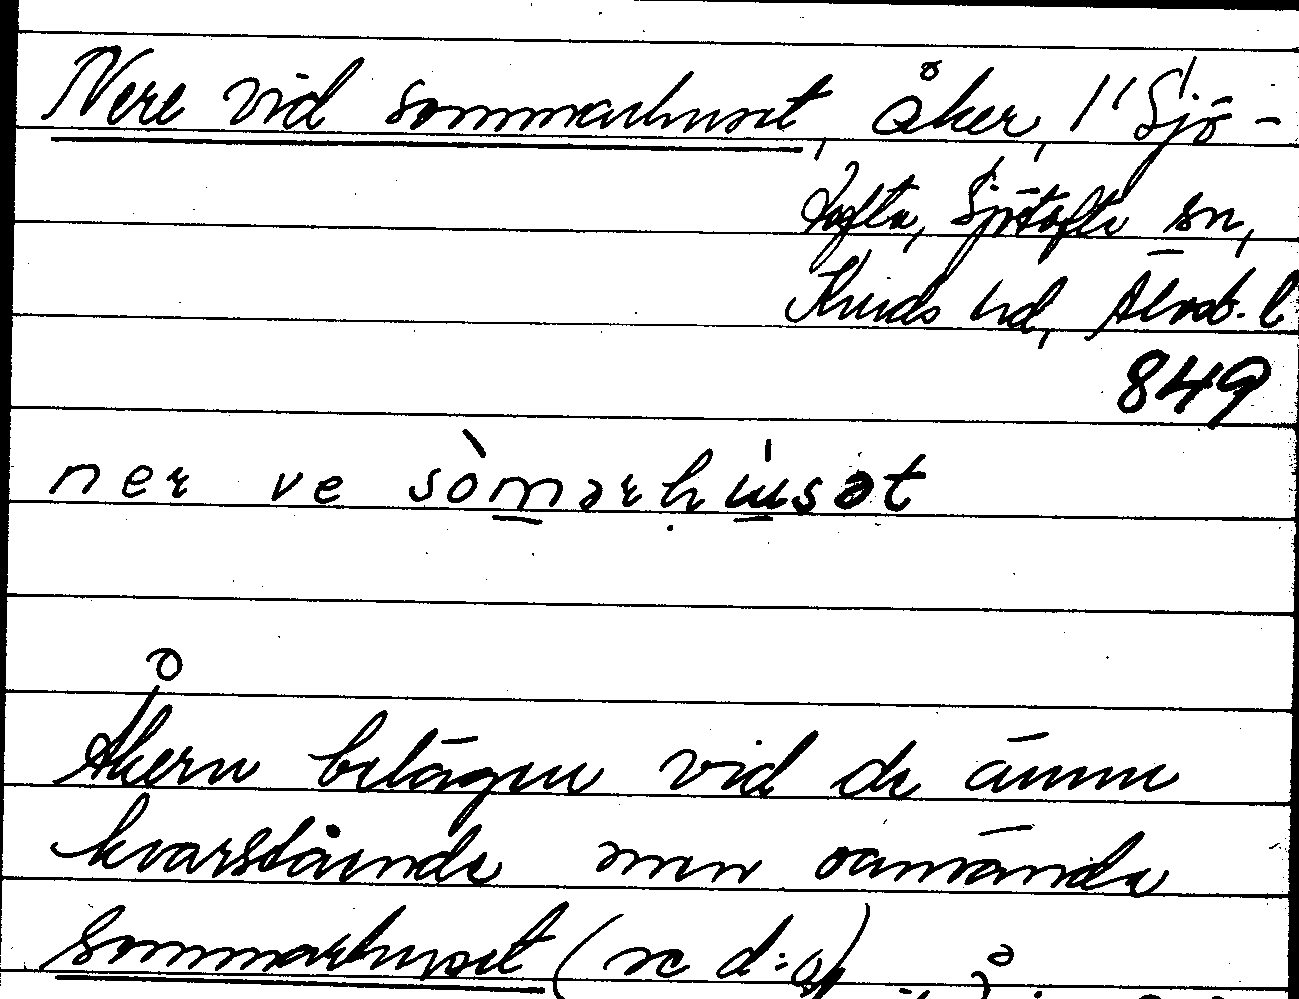 Nere vid sommarhuset, åker, 1/1 Sjö-
tofta, Sjötofta sn,
Kinds hd, Älvsb. l
849
ner ve sòmərhu̇sət
Åkern belägen vid de ännu
kvarstående men oanvända
sommarhuset (se d:o)